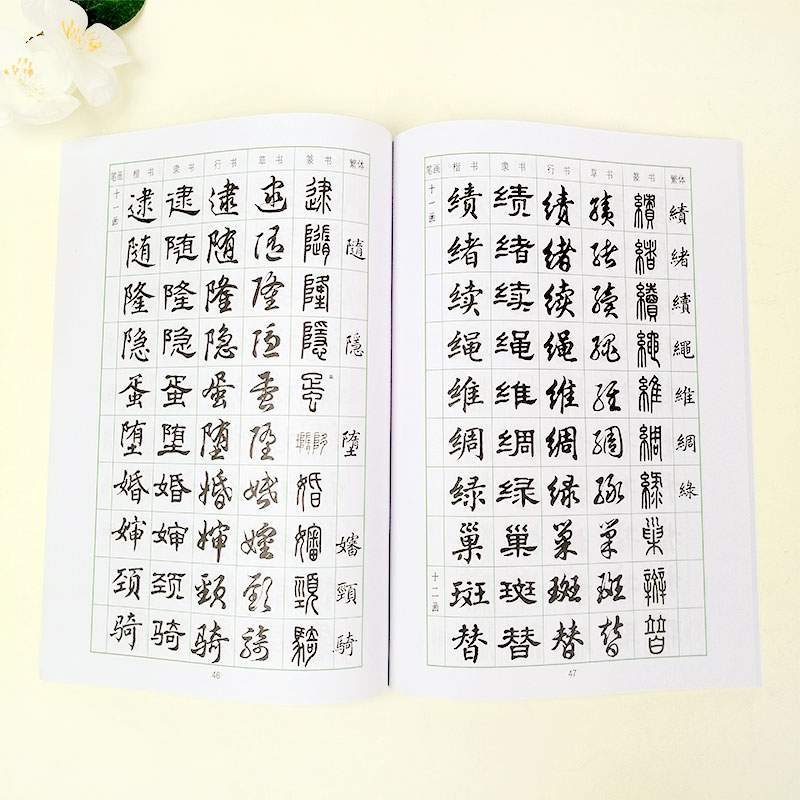 笔画 楷书 隶书 行书 草书 篆书 繁体
十一画 逮 逮 逮 逮 逮
随 随 随 随 隨 隨
隆 隆 隆 隆 隆
隐 隐 隐 隐 隱 隱
蛋 蛋 蛋 蛋 蛋
堕 堕 堕 堕 墮
婚 婚 婚 婚 婚
婶 婶 婶 嬸 嬸 嬸
颈 颈 頸 頸 頸 頸
骑 骑 骑 騎 騎 騎
46
笔画 楷书 隶书 行书 草书 篆书 繁体
十一画 绩 绩 绩 績 績 績
绪 绪 绪 緒 緒 緒
续 续 续 續 續 續
绳 绳 绳 繩 繩 繩
维 维 维 維 維 維
绸 绸 绸 綢 綢 綢
绿 绿 绿 綠 綠 綠
巢 巢 巢 巢 巢
十二画 斑 斑 斑 斑 辬
替 替 替 替 替
47